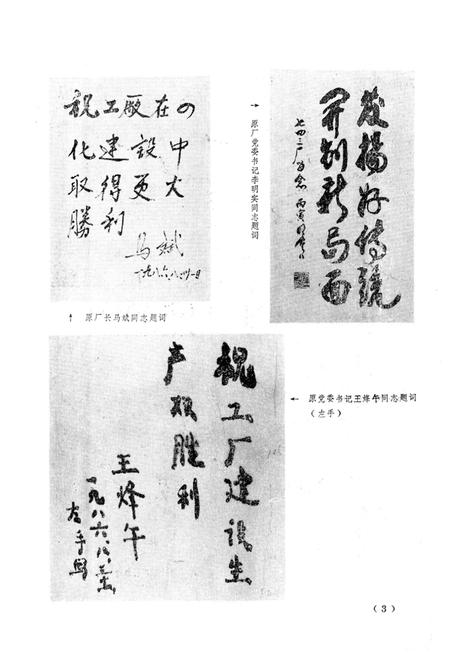 祝工厰在四
化建设中
取得更大
勝利
马斌
一九八六、八、
↑ 原厂长马斌同志题词
→ 原厂党委书记李明实同志题词
发揚好传统
开创新局面
七四三厂为念
丙寅
祝工厂建设生
产双胜利
王烽午
一九八六、八、
左手写
← 原党委书记王烽午同志题词
(左手)
(3)